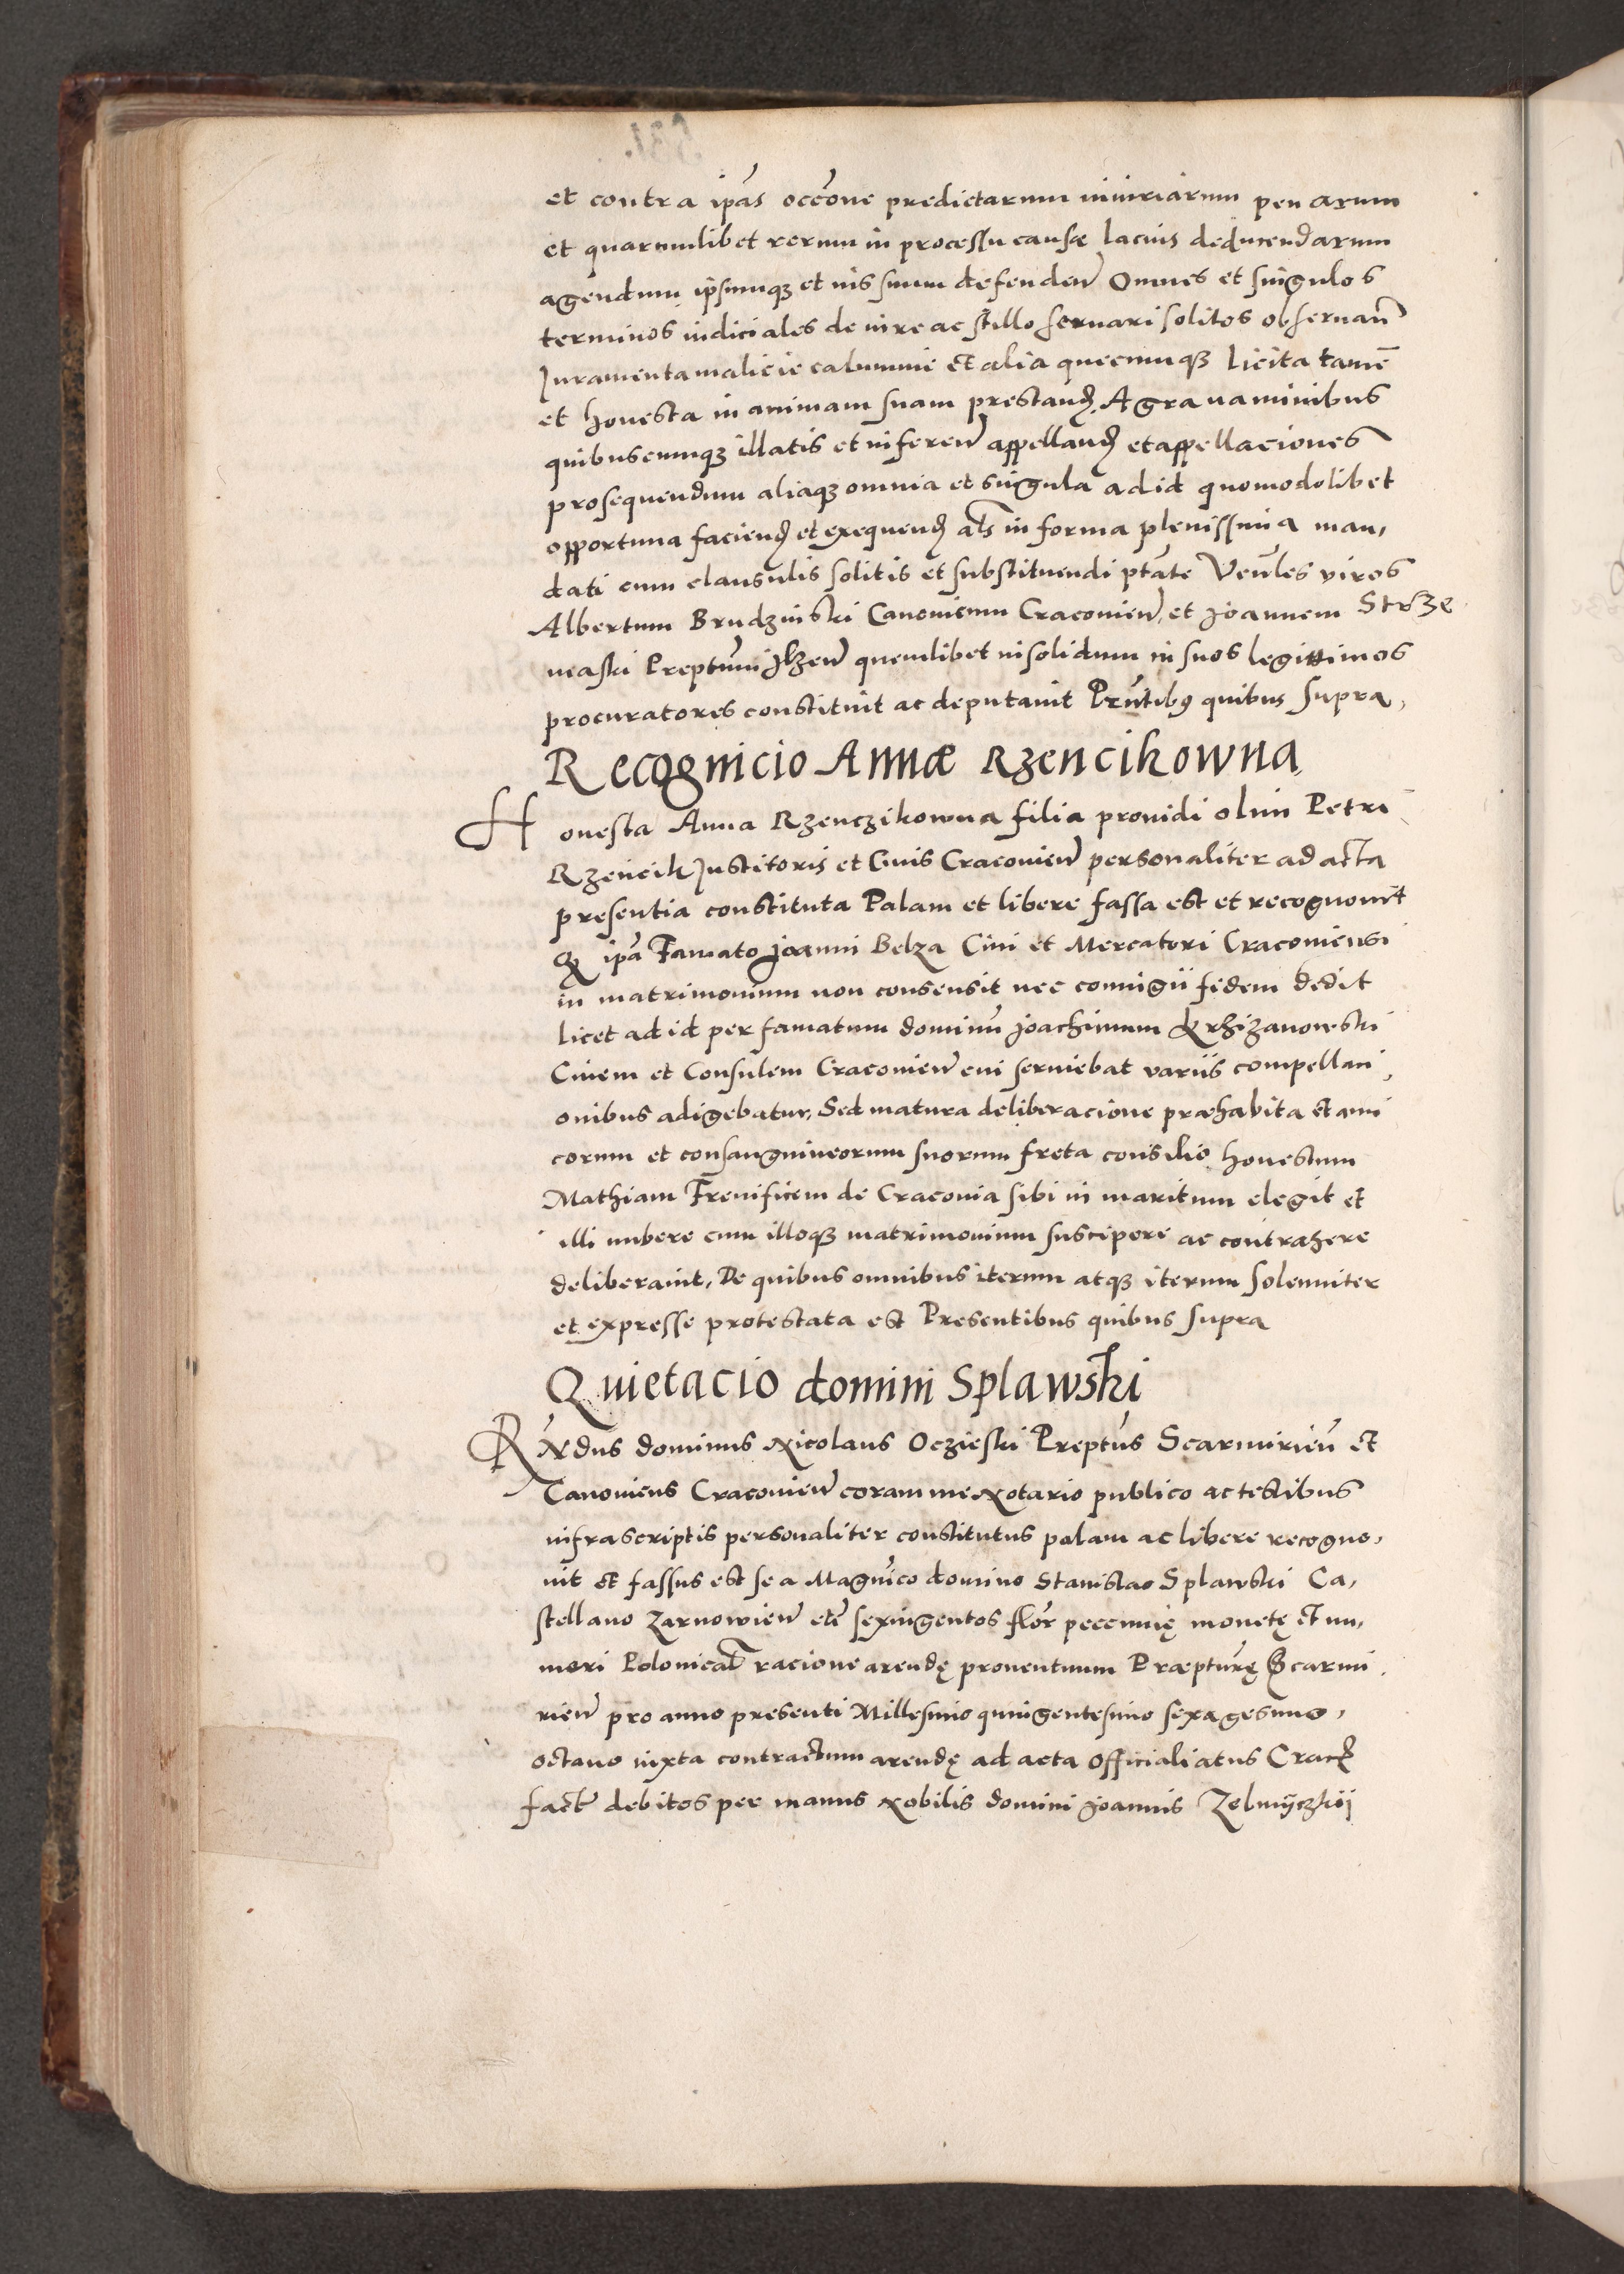 et contra ip̃as occ̃one predictarum iniuriarum penarum
et quarumlibet rerum in processu causæ lacius deducendarum
agendum ipsumqʒ et ius suum defendeñ Omnes et singulos
terminos iudiciales de iure ac stillo seruari solitos obseruañ
Juramenta malicie calumnie et alia quecumqʒ licita tamē
et honesta in animam suam prestanđ A grauaminibus
quibuscumqʒ illatis et inferen̄ appellanđ et appellaciones
prosequendum aliaqʒ omnia et singula ad id quomodolibet
opportuna facienđ et exequenđ al̃s in forma plenissima man,
dati cum clausulis solitis et substituendi pt̃ate Ven̄les viros
Albertum Brudzinski Canonicum Cracovien̄, et Joannem Strze
measki Preptum̄ Jlzen̄ quemlibet insolidum in suos legittimos
procuratores constituit ac deputauit Prn̄tibꝯ quibus supra,
Recognicio Annæ Rzencikowna
Honesta Anna Rzenczikowna filia prouidi olim Petri
Rzencik Institoris et Ciuis Cracouien̄ personaliter ad acta
presentia constituta Palam et libere fassa est et recognouit
Qʒ ip̃a Famato Joanni Belza Ciui et Mercatori Cracouiensi
in matrimonium non consensit nec coniugii fidem dedit
licet ad id per famatum dominum̄ Joachimum Krzizanowski
Ciuem et Consulem Cracouien̄ cui seruiebat variis compellaci
onibus adigebatur, Sed matura deliberacione præhabita et ami
corum et consanguineorum suorum freta consilio honestum
Mathiam Frenificem de Cracouia sibi in maritum elegit et
illi nubere cum illoqʒ matrimonium suscipere ac contrahere
deliberauit, De quibus omnibus iterum atqʒ iterum solenniter
et expresse protestata est Presentibus quibus supra
Quietacio domini Splawski
Rndus dominus Nicolaus Oczieski Prept̄us Scarmirien̄ et
Canonicus Cracouien̄ coram me Notario publico ac testibus
infrascriptis personaliter constitutus palam ac libere recogno,
uit et fassus est se a Magn̄ico domino Stanislao Splawski Ca,
stellano Zarnowien̄ etc̄ sexingentos flor̄ pecunię monetę et nu,
meri Polonical̄ racione arendę prouentuum Præpturę Scarmi
rien̄ pro anno presenti Millesimo quingentesimo sexagesimo,
octauo iuxta contractum arendę ad acta Officialiatus Crac̄
fact̄ debitos per manus Nobilis domini Joannis